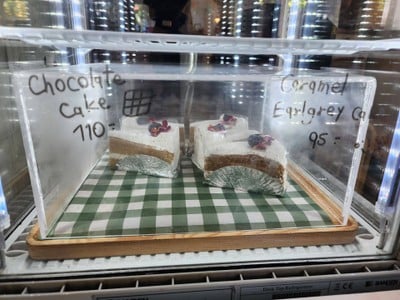 Chocolate
Cake
110.-
Caramel
Earlgrey Ca
95.-